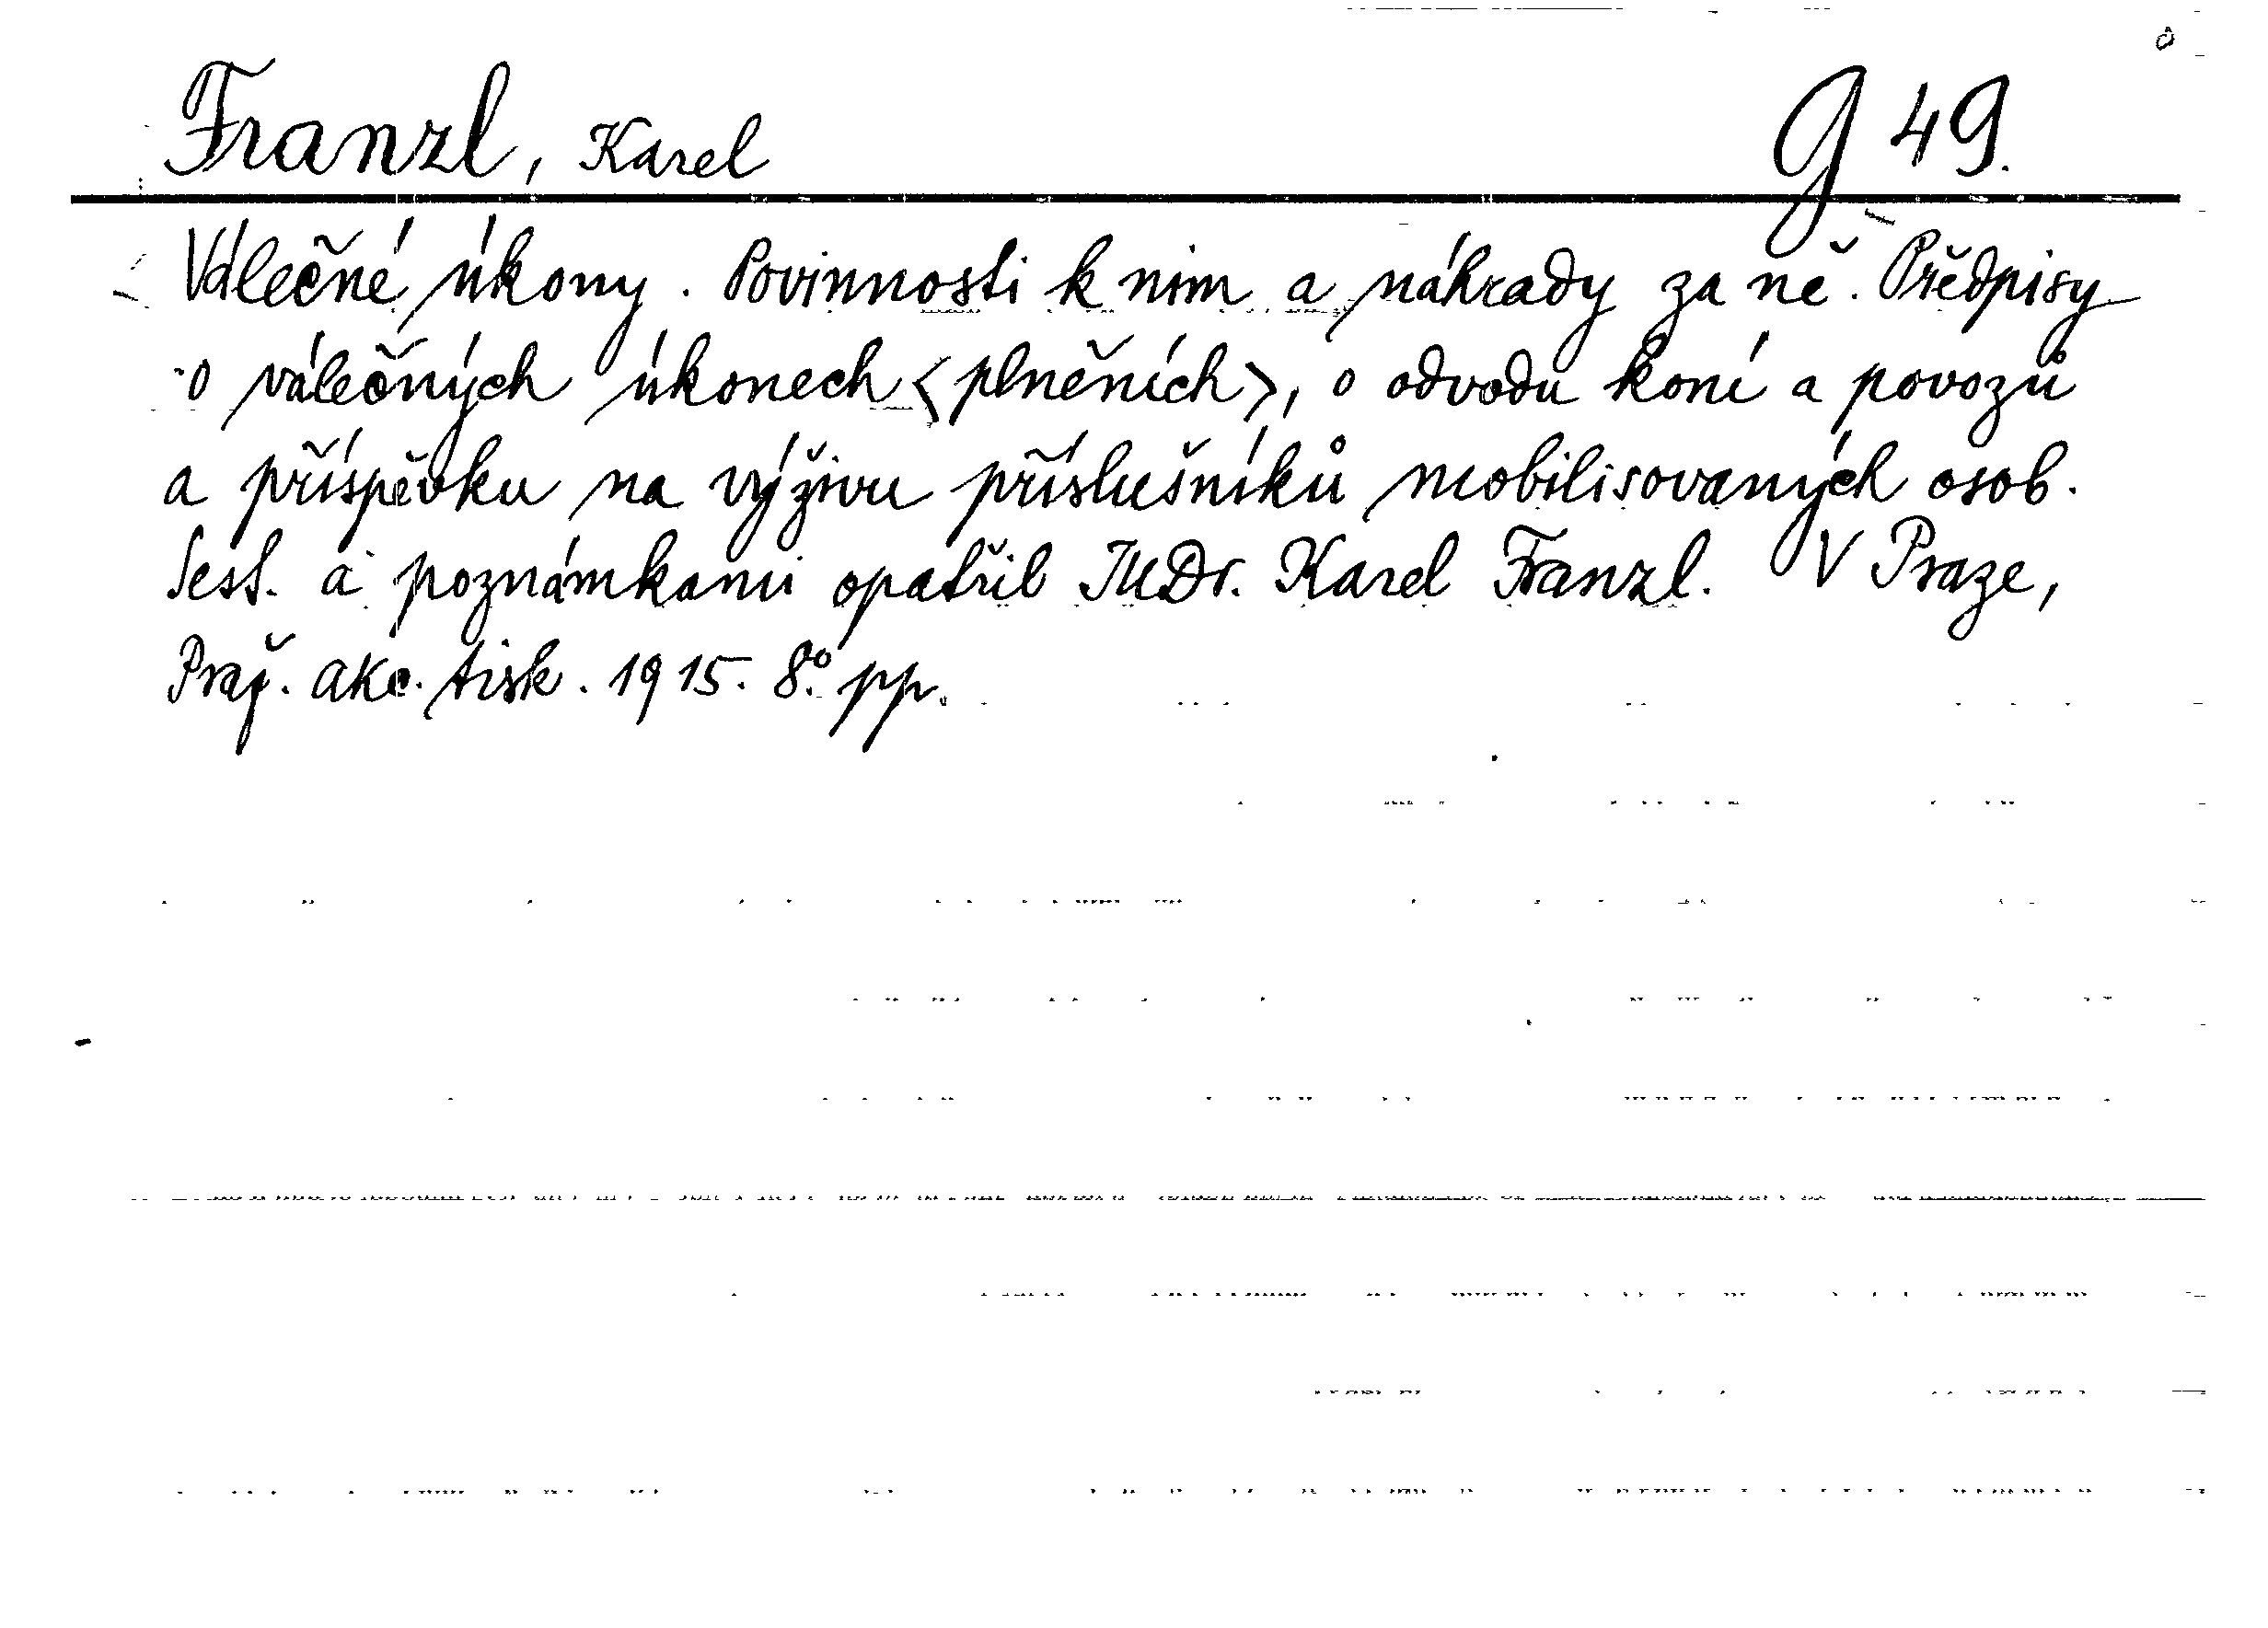 Franzl, Karel G 49.
Válečné úkony. Povinnosti k nim a náhrady za ně. Předpisy
o válečných úkonech <plněních>, o odvodu koní a povozů
a příspěvku na výživu příslušníků mobilisovaných osob.
Sest. a poznámkami opatřil JUDr. Karel Franzl. V Praze,
Praž. akc. tisk. 1915. 8.º pp.